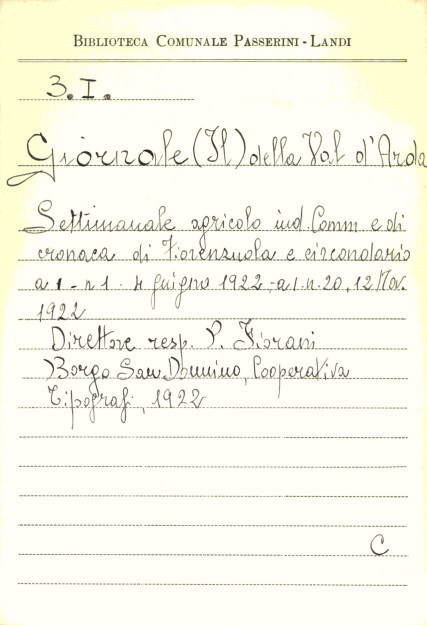 BIBLIOTECA COMUNALE PASSERINI - LANDI
3. I.
Giornale (Il) della Val d'Arda
Settimanale agricolo ind. Comm e di
cronaca di Fiorenzuola e circondario
a 1 - n 1. 4 guigno 1922 - a 1. n. 20, 12 Nov.
1922
Direttore resp. P. Fiorani
Borgo San Donnino, Cooperativa
Tipografi, 1922
C